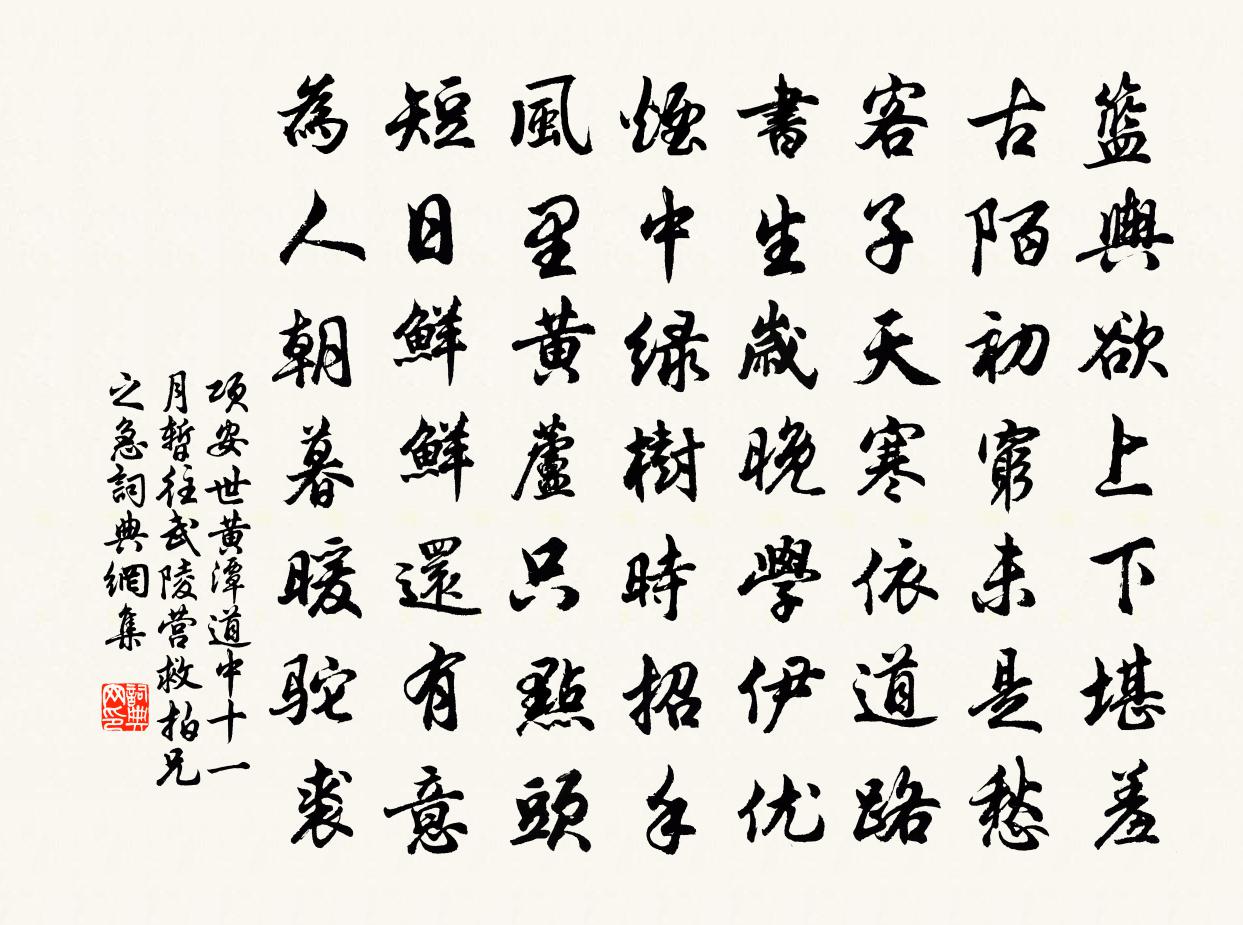 籃輿欲上下堪羞
古陌初窮未是愁
客子天寒依道路
書生歲晚學伊优
煙中綠樹時招手
風里黃蘆只點頭
短日鮮鮮還有意
為人朝暮暖駝裘
項安世黃潭道中十一
月暫往武陵营救柏兄
之急詞典網集
詞典网印